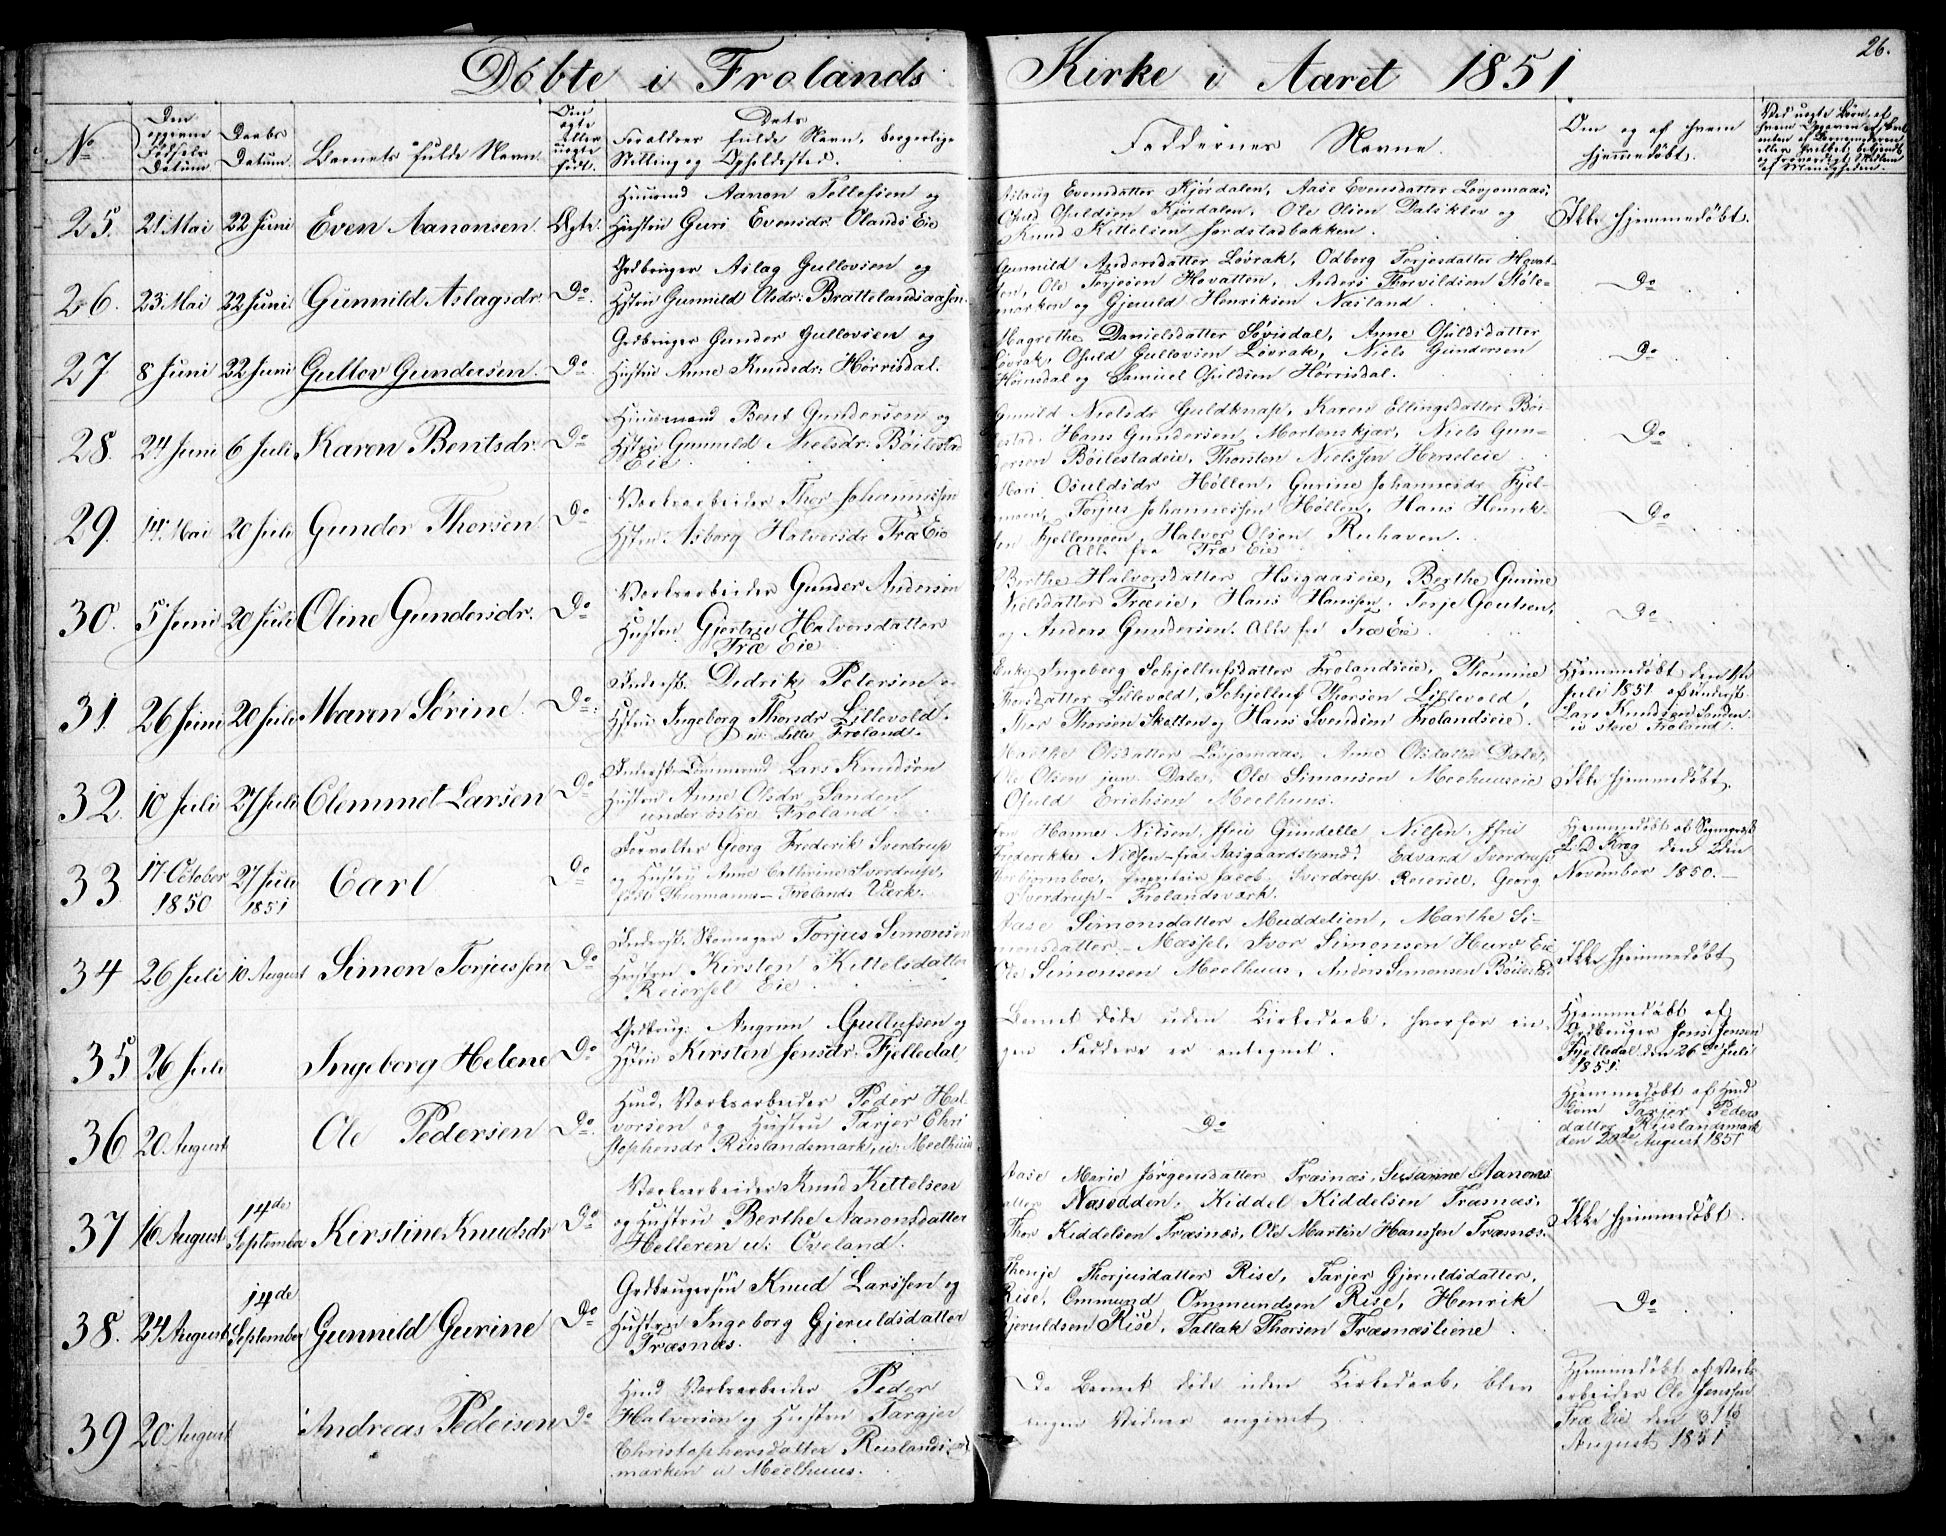 26.
Döbte i Frolands Kirke i Aaret 1851
No
Den opgivne Fødsels Datum
Daabs Datum.
Barnets fulde Navn.
Om ægte eller uægte født.
Dets Forældres fulde Navn, borgerlige Stilling og Opholdssted.
Faddernes Navne.
Om og af hvem hjemmedøbt.
25. 21 Mai 22 Juni Even Aanonsen. Ægte.
Huusmd Aanon Tellefsen og
Hustru Guri Evensdr. Olands Eie
Aslaug Evensdatter Kjördalen, Aase Evensdatter Lovjomaas,
Osuld Osuldsen Kjördalen, Ole Olsen Dalsklev og
Knud Kittelsen Jordstadbakken.
Ikke hjemmedøbt.
26. 23 Mai 22 Juni. Gunnild Aslagsdr. Do.
Grdbruger Aslag Gullovsen og
Hstru Gunnild Olsdr. Brattelandsaasen.
Gunnild Andersdatter Lövrak, Odberg Torjesdatter Hovat-
ten, Ole Torjesen Hovatten, Anders Thorvildsen Stöle-
marken og Gjeruld Henriksen Nasland.
Do
27. 8 Juni 22 Juni Gullov Gundersen. Do.
Grdbruger Gunder Gullovsen og
Hustru Anne Knudsdr. Hörrisdal.
Magrethe Danielsdatter Sövisdal, Anne Osuldsdatter
Lövrak, Osuld Gullovsen Lövrak, Niels Gundersen
Hörrisdal og Samuel Osuldsen Hörrisdal.
Do
28. 24 Juni 6 Juli Karen Bentsdr. Do
Huusmand Bent Gundersen og
Hstru Gunnild Nielsdr. Böilestad
Eie.
Gunild Nielsdr Guldknap, Karen Ellingsdatter Böi-
lestad. Hans Gundersen Mortenskjær, Niels Gun-
dersen Böilestadeie, Thorsten Nielssen Heneleie.
Do
29. 14 Mai 20 Juli Gunder Thorsen Do
Værksarbeider Thor Johannessen
Hstru: Asborg Halvorsdr Træ Eie
Mari Osuldsdr Höllen, Gurine Johannesdr Fjel-
moen, Torjus Johannessen Höllen, Hans Henrik-
sen Fjellemoen, Halvor Olsen Ruhaven.
Alle fra Træ Eie
Do
30. 5 Juni 20 Juli Oline Gundersdr. Do
Værksarbeider Gunder Andersen
Hustru Gjertrie Halvorsdatter
Træ Eie
Berthe Halvorsdatter Haugaaseie, Berthe Gurine
Nielsdatter Træeie, Hans Hanssen, Terje Goutsen,
og Anders Gundersen. Alle fra Træ Eie.
Do
31. 26 Juni 20 Juli Maren Sörine. Do.
Inderst. Didrik Petersen og
Hstru Ingeborg Thorsdr Lillevold.
u. lille Froland.
Enke Ingeborg Schjellufsdatter Frolandseie, Thomine
Thorsdatter Lillevold, Schjelluf Thorsen Lillevold,
Thor Thorsen Sketten og Hans Svendsen Frolandseie.
Hjemmedøbt den
Juli 1851 af inderst.
Lars Knudsen Sanden
u store Froland.
32. 10 Juli 27 Juli Clemmet Larsen Do
Inderst-Tömmermd Lars Knudsen
Hustru Anne Olsdr Sanden
under östre Froland.
Marthe Olsdatter Lövjomaas, Anne Olsdatter Dale,
Ole Olsen jun. Dale, Ole Simonsen Meehuuseie
Osuld Erichsen Meelhuus.
Ikke hjemmedøbt.
33 17 October 1850 27 Juli 1851 Carl Do
Forvalter Georg Frederik Sverdrup
og Hustru Anne Cathrine Sverdrup,
født Thurmann - Frolands Værk.
Hanne Nielsen, Gundelle Nilsen,
Frederikke Nilsen - fra Aasgaardstrand. Edvard Sverdrup
Thorbjörnsboe, Proprietair Jacob Sverdrup Reiersel, Georg
Sverdrup - Frolandsværk.
Hjemmedøbt af Sognepræst
Krog den 2den
November 1850.
34 26 Juli 10 August Simon Torjussen Do
Inderst. Skomager Torjus Simonsen
Hustru Kirsten Kittelsdatter
Reiersel Eie
Aase Simonsdatter Muddelien, Marthe Si-
monsdatter Mæssel, Ivor Simonsen Hurv Eie
Ole Simonsen Meelhuus, Anders Simonsen Böilestad
Ikke hjemmedøbt
35 26 Juli Ingeborg Helene Do
Grdbrug: Angrim Gullufsen og
Hstru Kirsten Jensdr. Fjelledal
Barnet döde uden Kirkedaab, hvorfor in-
gen Faddere er antegnet.
Hjemmedøbt af
Grdbruger Jens Jensen
Fjelledal den 26de Juli
1851.
36 20 August Ole Pedersen Do.
Huusmd, Værksarbeider Peder Hal-
vorsen og Hustru Tarjer Chri
stophersdr Riislandsmark, u. Meelhuus
Do
Hjemmedøbt af
Tarjer Peders
datter Riislandsmark
den 20de August 1851
37 16 August 14de September Kirstine Knudsdr Do
Værksarbeider Knud Kittelsen
og Hustru Berthe Aanonsdatter
Helleren u: Öveland.
Aase Marie Jörgensdatter Træsnæs, Susanne Aanons
datter Næsodden, Kiddel Kiddelsen Træsnæs,
Thor Kiddelsen Træsnæs, Ole Martin Hanssen Træsnæs.
Ikke hjemmedøbt.
38. 24 August 14de September Gunnild Gurine Do
Grdbrugersøn Knud Larssen og
Hustru Ingeborg Gjeruldsdatter
Træsnæs.
Thonje Thorjusdatter Rise, Tarjer Gjeruldsdatter,
Rise, Ommund Ommundsen Rise, Henrik
Gjeruldsen Rise, Tallak Thorsen Træsnæsliene
Do
39 20 August Andreas Pedersen Do
Huusmd Værksarbeider Peder
Halvorsen og Hustru Targjer
Christophersdatter Riislands
marken u Meelhuus.
Da Barnet døde uden Kirkedaab, blev
ingen Vidner angivet
Hjemmedøbt af Værks
arbeider Ole Jenssen
Træ Eie den 31te
August 1851